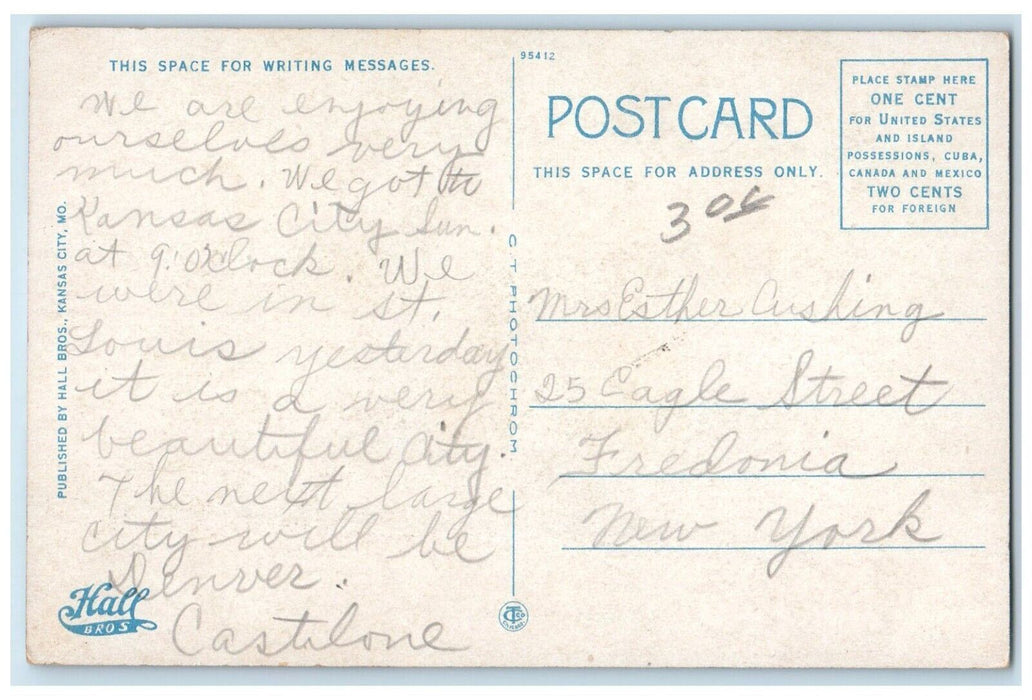 THIS SPACE FOR WRITING MESSAGES.
We are enjoying
ourselves very
much. We got to
Kansas City Sun.
at 9 o'clock. We
were in St.
Louis yesterday
it is a very
beautiful city.
The next large
city will be
Denver.
Castilone
PUBLISHED BY HALL BROS., KANSAS CITY, MO.
Hall
BROS
95412
CT PHOTOCHROM
POST CARD
THIS SPACE FOR ADDRESS ONLY.
PLACE STAMP HERE
ONE CENT
FOR UNITED STATES
AND ISLAND
POSSESSIONS, CUBA,
CANADA AND MEXICO
TWO CENTS
FOR FOREIGN
Mrs Esther Cushing
25 Eagle Street
Fredonia
New York